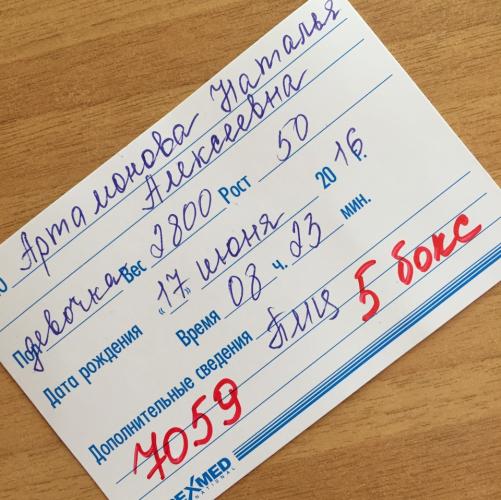 О Артамонова Наталья
Алексеевна
Пол девочка Вес 2800 Рост 50
Дата рождения "17" июня 2016 г.
Время 08 ч. 23 мин.
Дополнительные сведения АМЦ 5 бокс
7059
EXMED
INTERNATIONAL